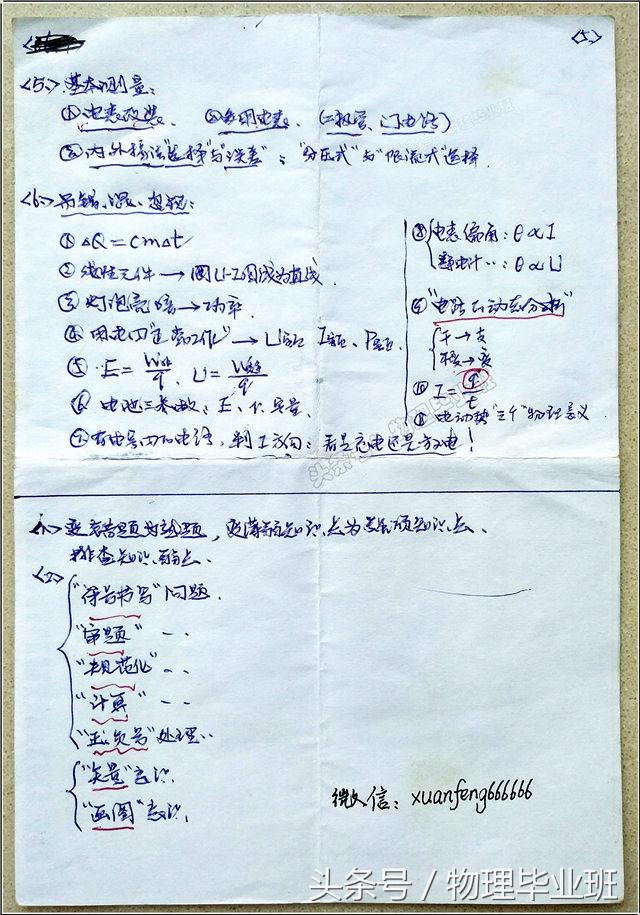 <5>
<5> 基本测量:
① 电表改装、 ② 多用电表、 (二极管、门电路)
③ 内外接法"选择"与"误差"; "分压式"与"限流式"选择.
<6> 易错、混、忽视:
① ΔQ=cmΔt
② 线性元件→图U-I图线为直线.
③ 灯泡亮暗→功率.
④ 用电器"正常工作"→U额、I额、P额.
⑤ E=W非/q、U=W电/q
⑥ 电池三参数: E、r、容量.
⑦ 有电容的电路,判I方向: 看是充电还是放电!
⑧ 电表偏角: θ∝I
静电计‥: θ∝U
⑨ "电路的动态分析"
干→支
⑩ I=q/t
⑪ 电动势"三个"物理意义
<1> 变易错题为熟题, 变薄弱知识点为
排查知识弱点.
<2>
"符号书写"问题.
"审题" ‥
"规范化" ‥
"计算" ‥
"正负号"处理‥
"矢量"意识.
"画图"意识.
微信: xuanfeng666666
头条号 / 物理毕业班